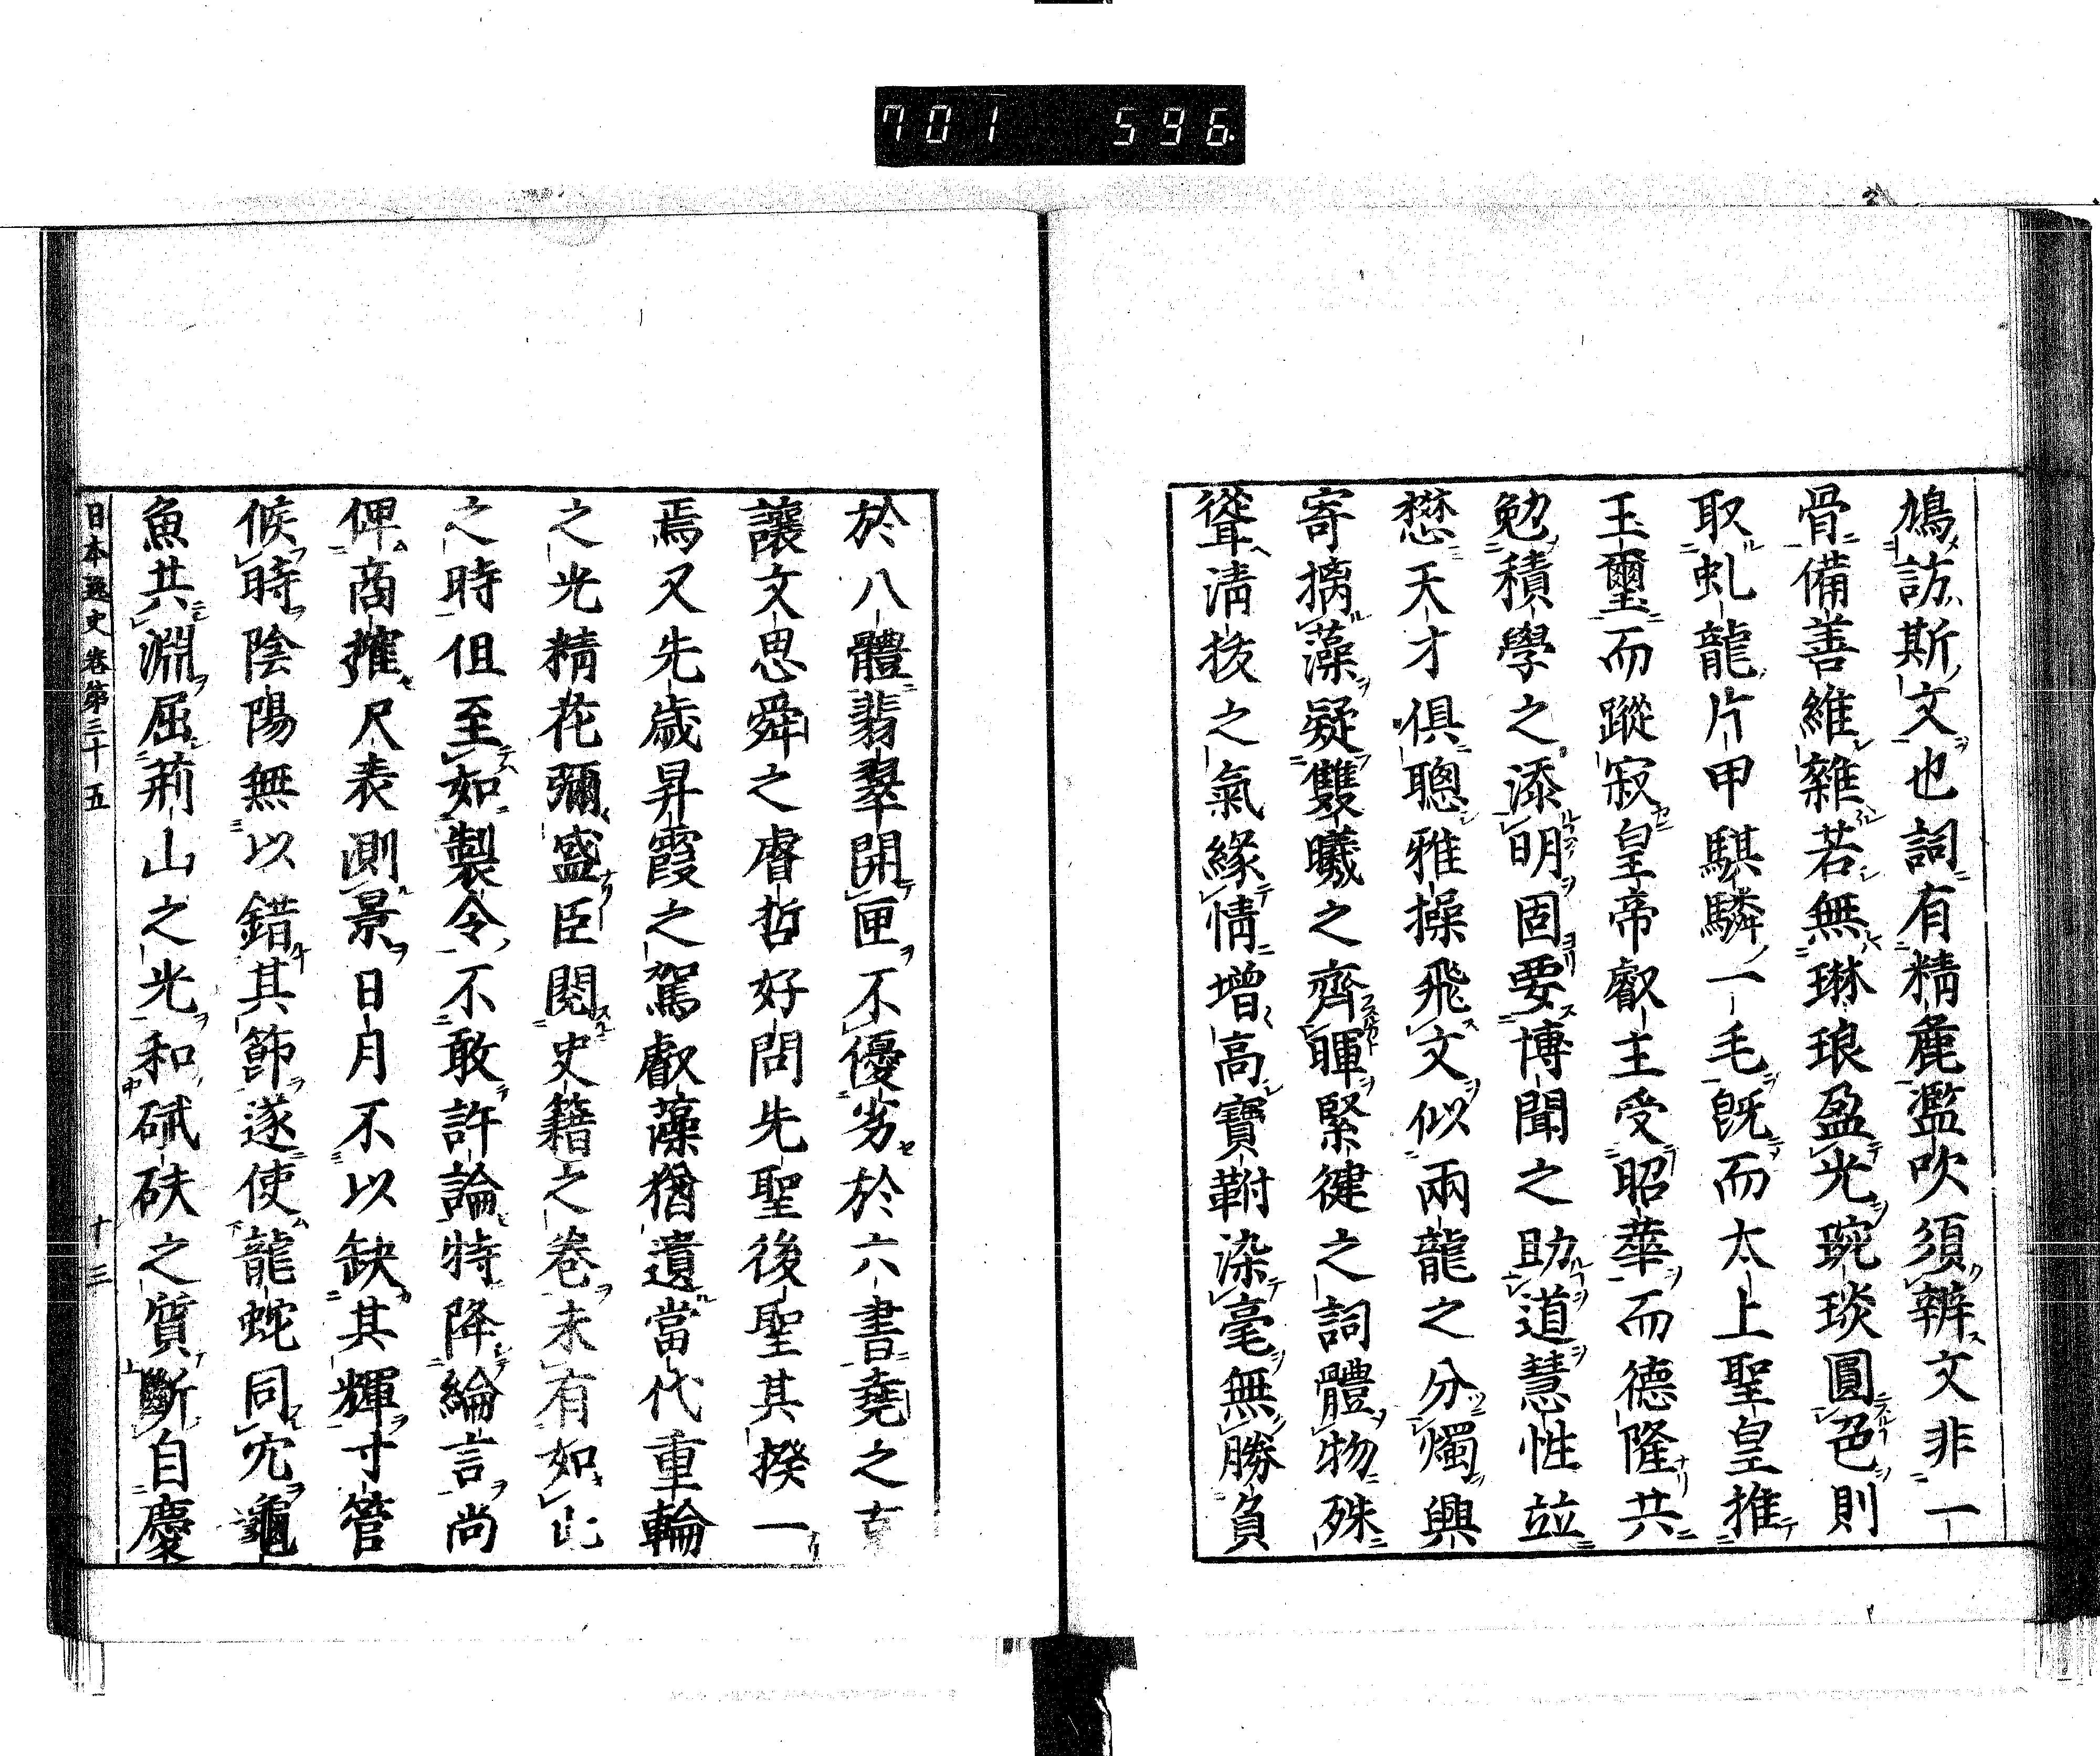 701 596
鳩訪斯文也詞有精麁濫吹須辨文非一
骨備善維雜若無琳琅盈光琬琰圓色則
取虬龍片甲騏驎一毛既而太上聖皇推
玉璽而蹤寂皇帝叡主受昭華而德隆共
勉積學之添明固要博聞之助道慧性竝
懋天才俱聰雅操飛文似兩龍之分燭興
寄摛藻疑雙曦之齊暉緊健之詞體物殊
聳清抜之氣緣情增高寶𩊱染毫無勝負
於八體翡翠開匣不優劣於六書堯之克
讓文思舜之睿哲好問先聖後聖其揆一
焉又先歳昇霞之駕叡藻猶遺當代重輪
之光精花彌盛臣閱史籍之卷未有如此
之時伹至如製令不敢許論特降綸言尚
俾商搉尺表測景日月不以缺其輝寸管
候時陰陽無以錯其節遂使龍蛇同穴龜
魚共淵屈荊山之光和碔砆之質斷自慶
日本逸史卷第三十五 十三